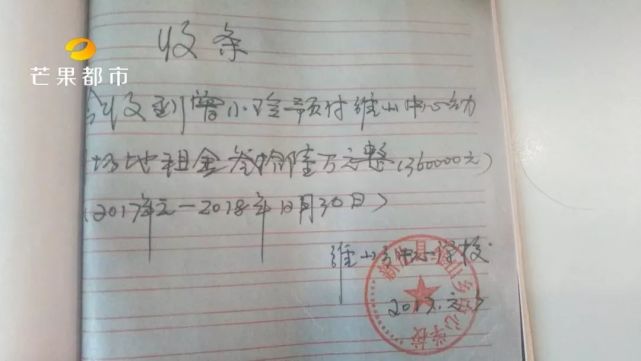 芒果都市
收条
今收到曾小玲预付维山中心幼
场地租金叁拾陆万元整(360000元)
(2017年元-2018年12月30日)
维山乡中心学校
2017.元.
新化县维山乡中心学校